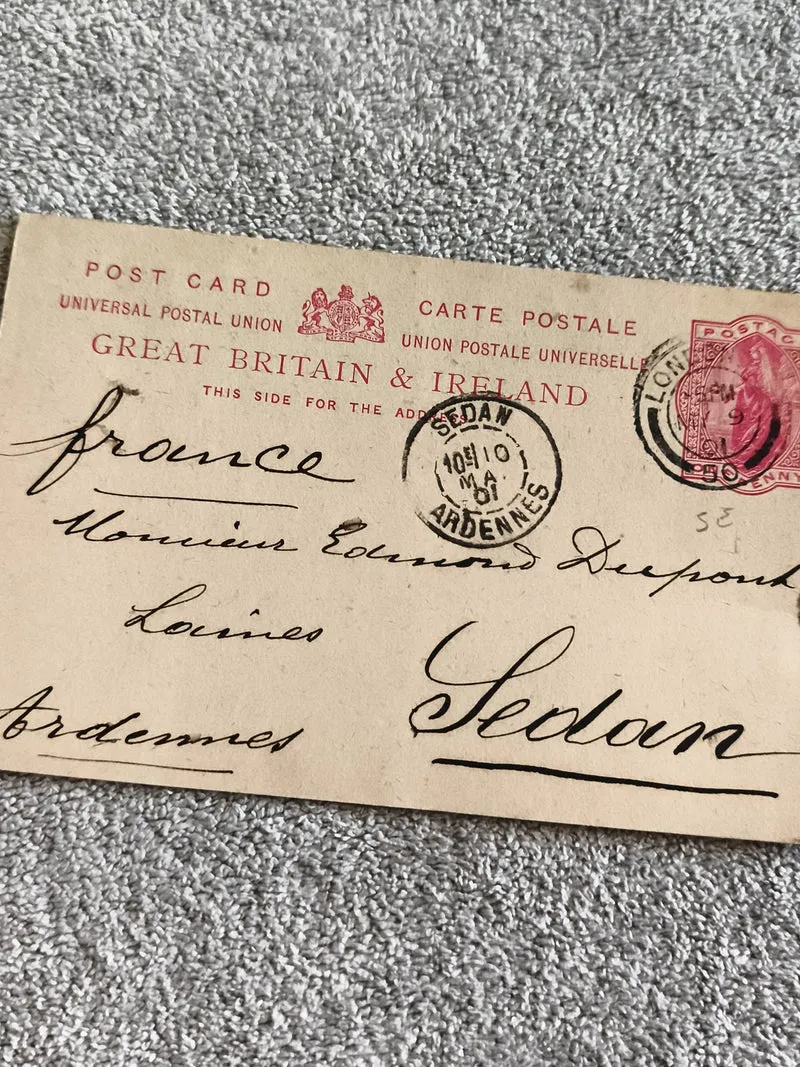 POST CARD
UNIVERSAL POSTAL UNION
CARTE POSTALE
UNION POSTALE UNIVERSELLE
GREAT BRITAIN & IRELAND
THIS SIDE FOR THE ADDRESS
POSTAG
PENNY
LON
PM
9
1
50
SEDAN
10
MA
01
ARDENNES
SE
France
Monsieur Edmond Dupont
Laines
Sedan
Ardennes